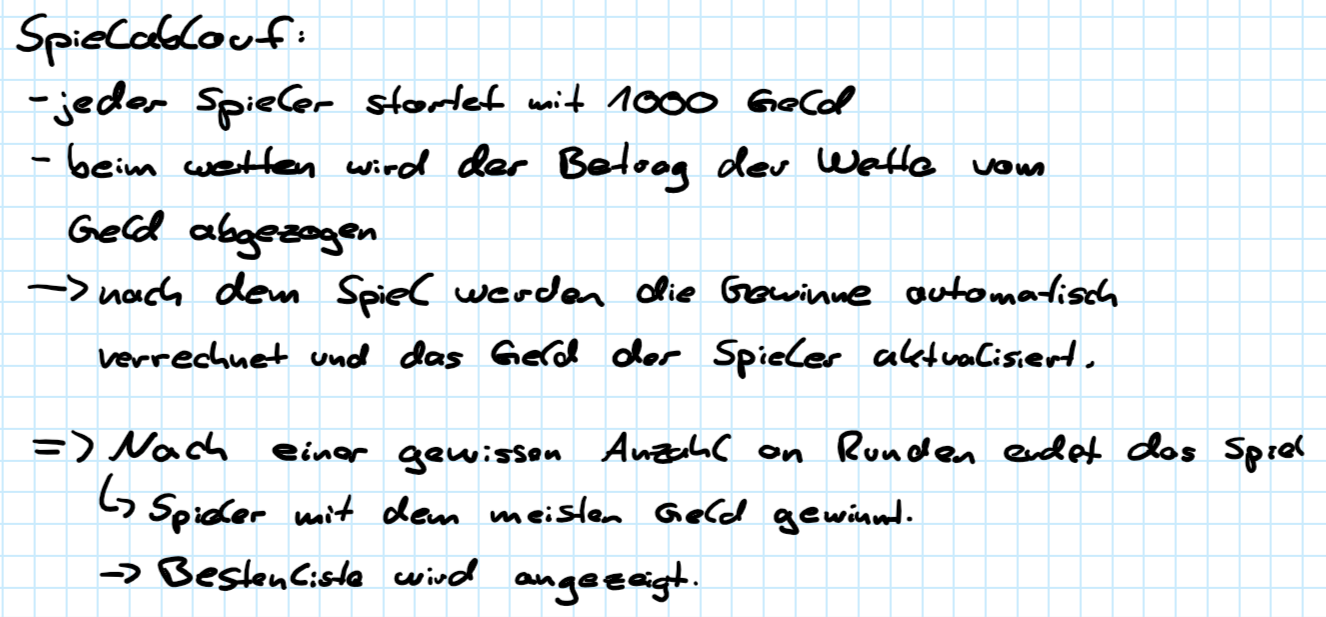 Spielablauf:
- jeder Spieler startet mit 1000 Geld
- beim wetten wird der Betrag der Wette vom
Geld abgezogen
-> nach dem Spiel werden die Gewinne automatisch
verrechnet und das Geld der Spieler aktualisiert.
=> Nach einer gewissen Anzahl an Runden endet das Spiel
↳ Spieler mit dem meisten Geld gewinnt.
-> Bestenliste wird angezeigt.